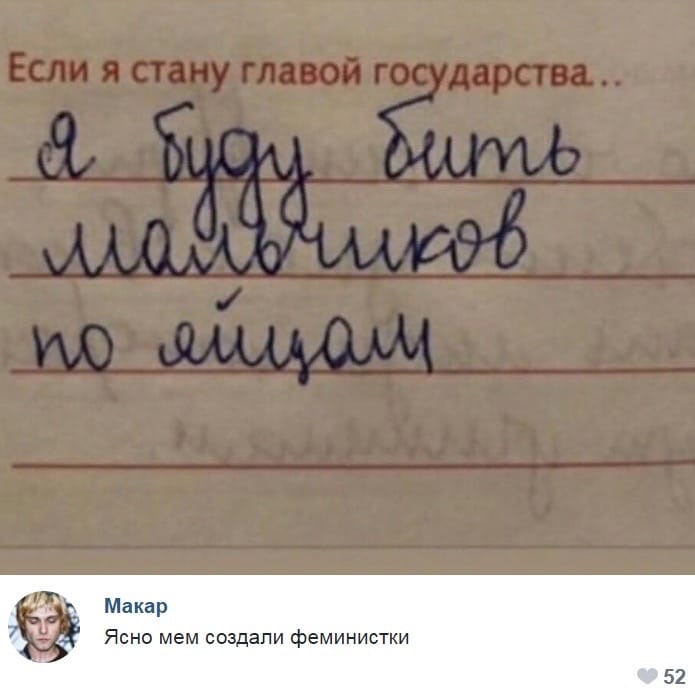 Если я стану главой государства...
Я буду бить
мальчиков
по яйцам
Макар
Ясно мем создали феминистки
52